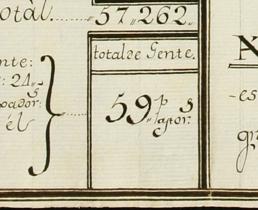 otàl. 57„262.
total de Gente.
nte:
: 24„
s
pador:
él
59„ p s
apor:
N
-es
gr